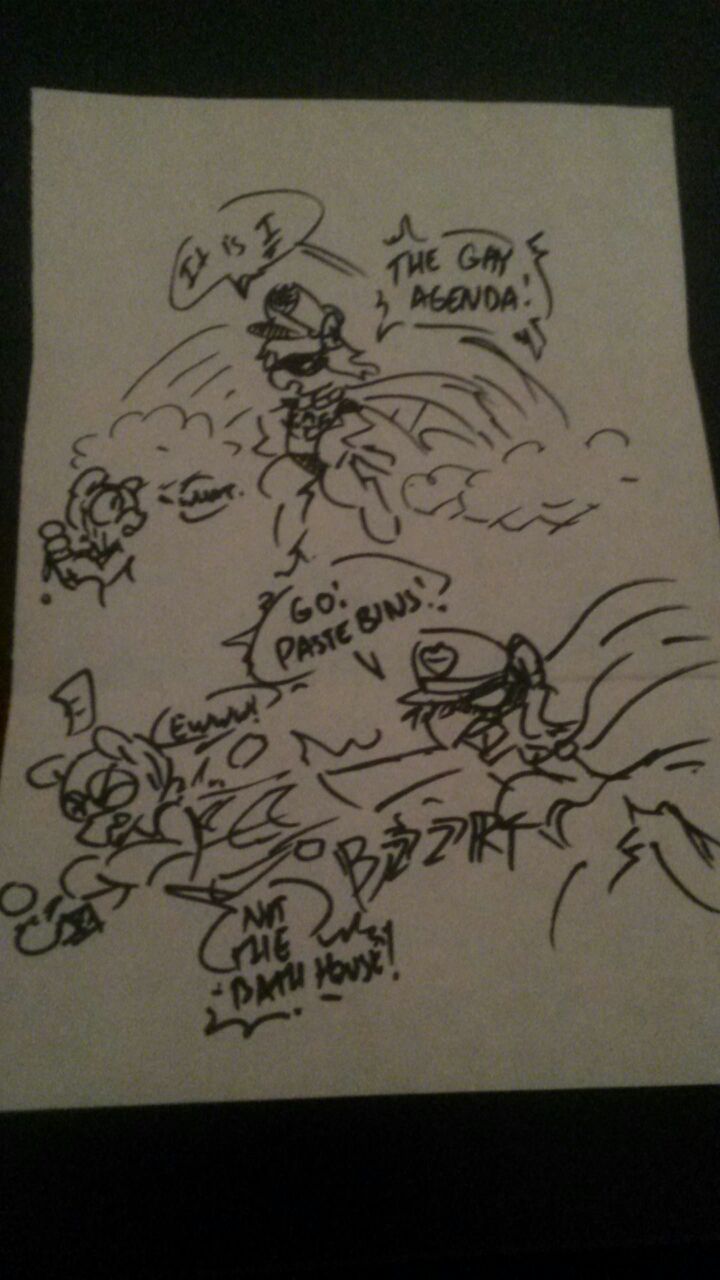 It is I
THE GAY
AGENDA!
WHAT.
GO!
PASTE BINS!
EWWW!
BZZZRT
NOT
THE
BATH HOUSE!